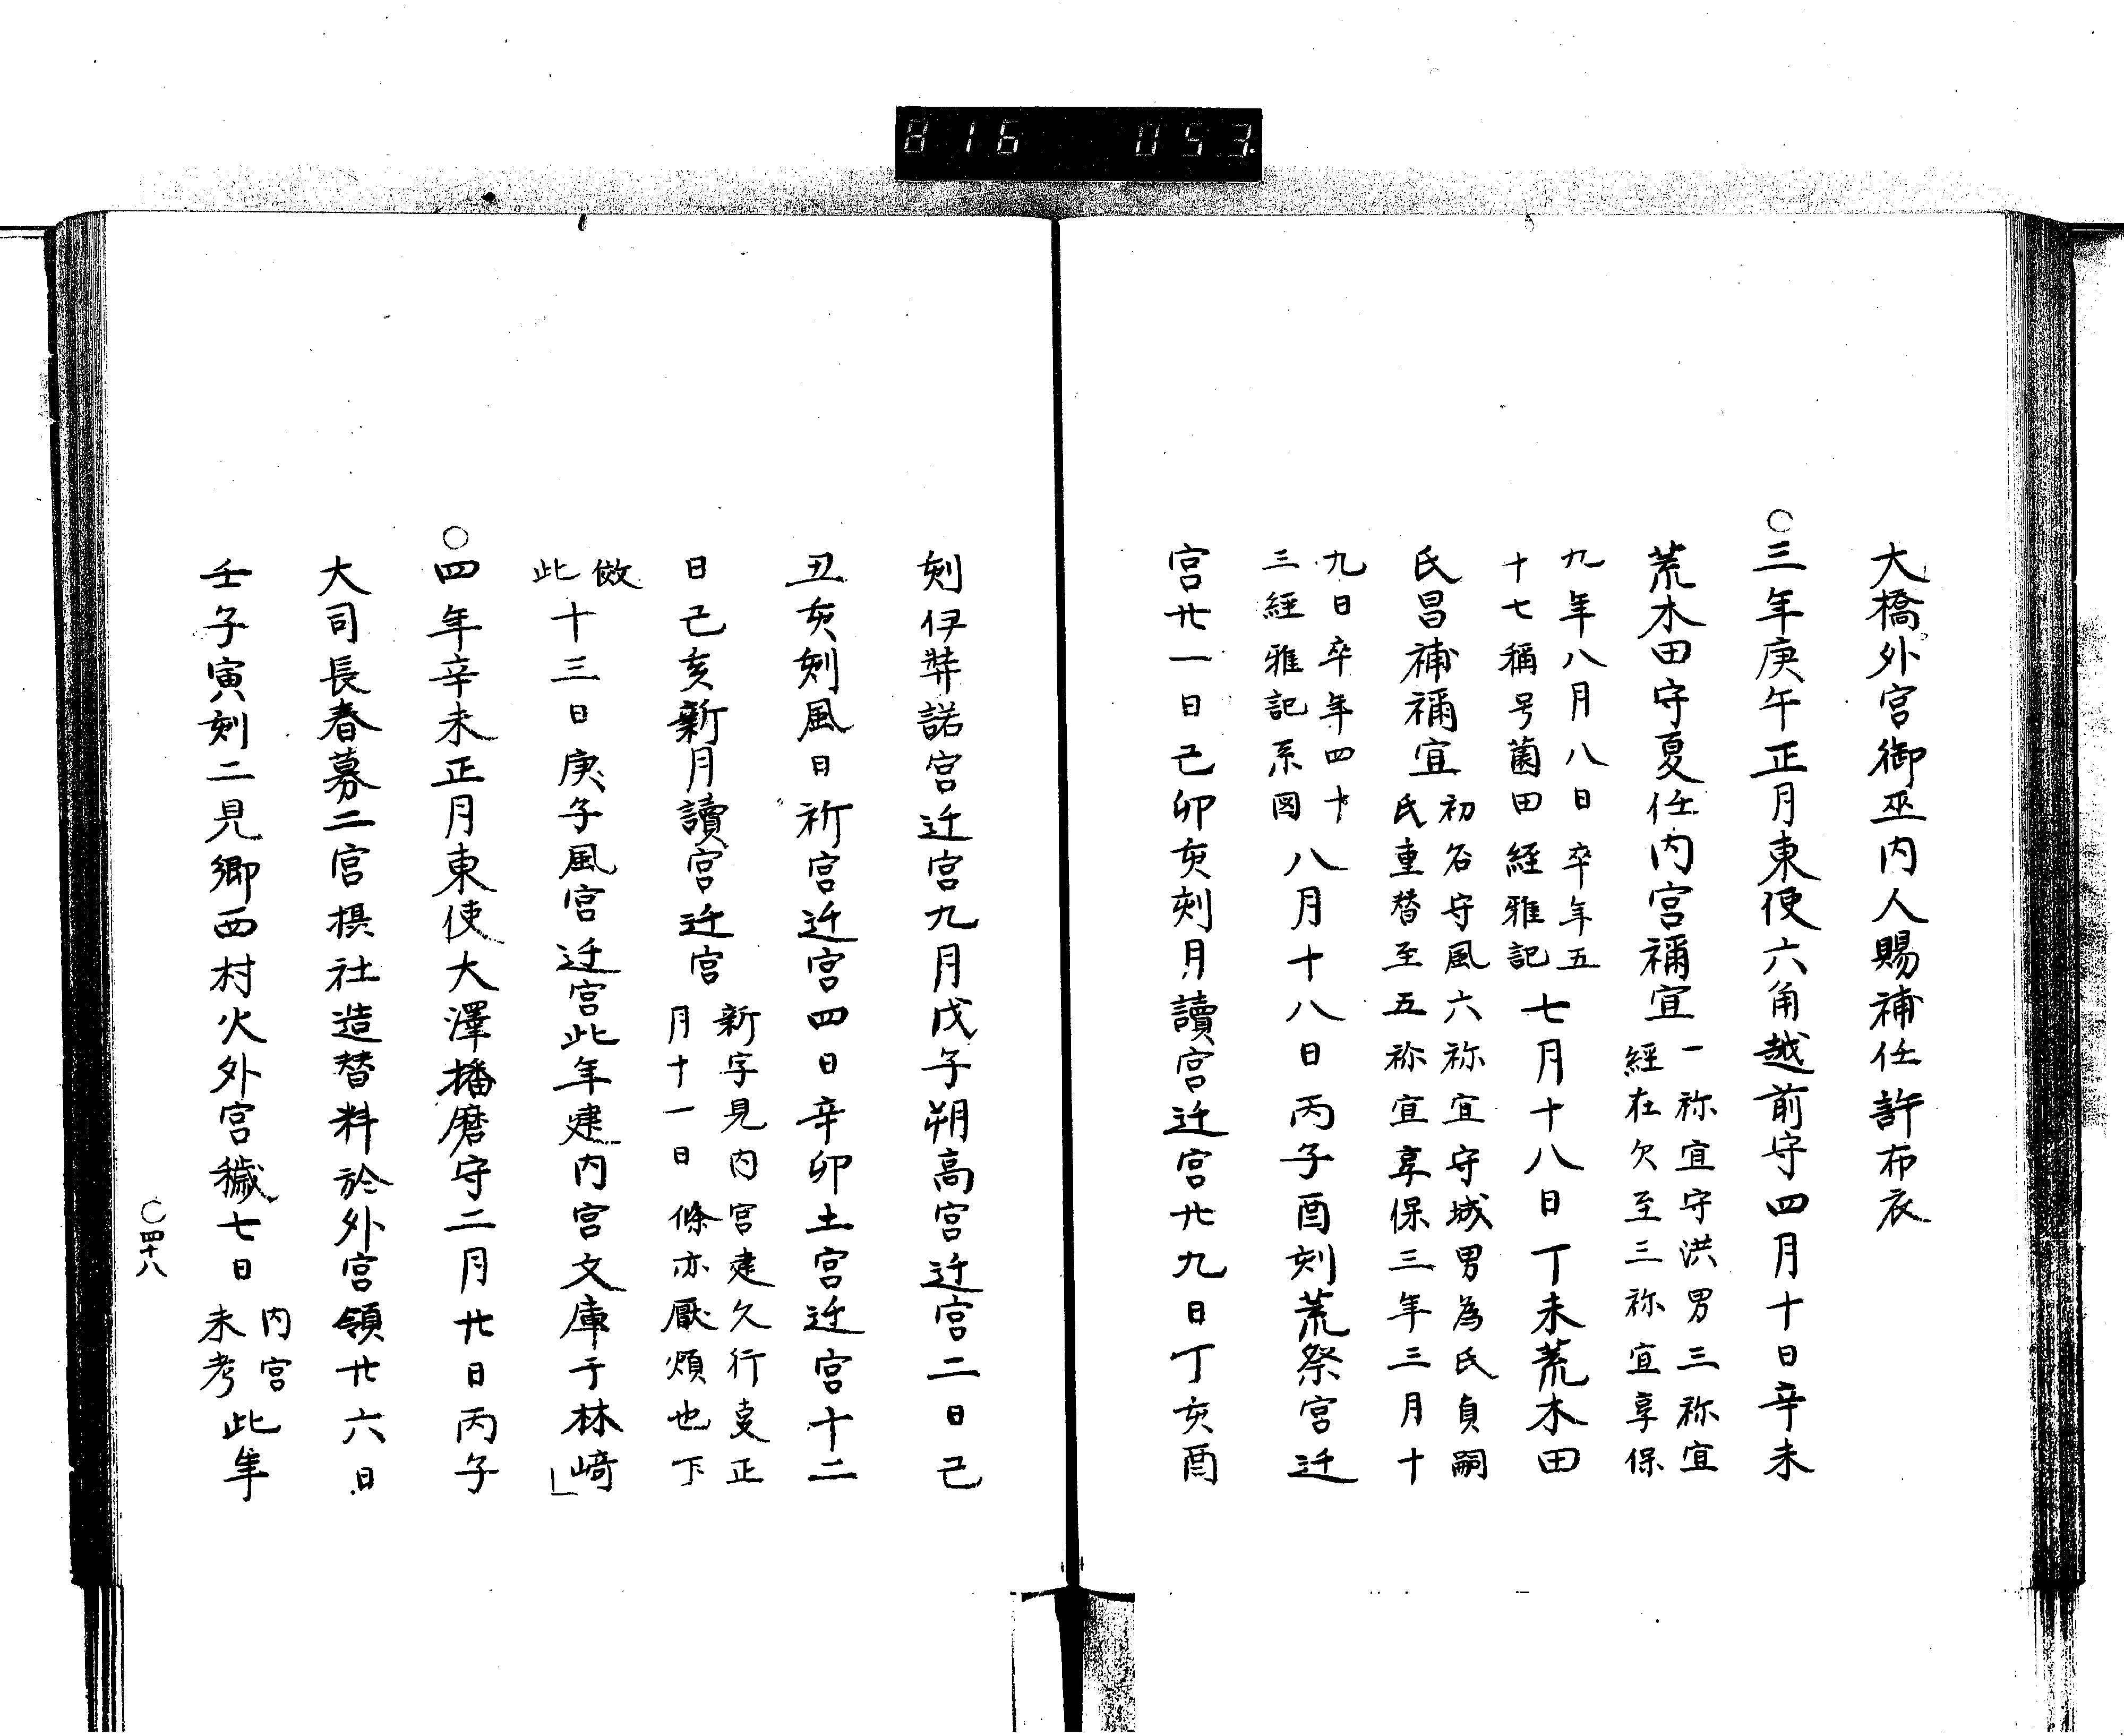 816 053.
大橋外宮御巫内人賜補任許布衣
○三年庚午正月東使六角越前守四月十日辛未
荒木田守夏任内宮禰宜
一祢宜守洪男三祢宜
經在欠至三祢宜享保
九年八月八日卒年五
十七稱号薗田經雅記
七月十八日丁未荒木田
氏昌補禰宜
初名守風六祢宜守城男為氏貞嗣
氏重替至五祢宜享保三年三月十
九日卒年四十
三經雅記系図
八月十八日丙子酉刻荒祭宮迁
宮廿一日己卯亥刻月讀宮迁宮廿九日丁亥酉
刻伊弉諾宮迁宮九月戊子朔高宮迁宮二日己
丑亥刻風日祈宮迁宮四日辛卯土宮迁宮十二
日己亥新月讀宮迁宮
新字見内宮建久行叓正
月十一日條亦厭煩也下
倣
此
十三日庚子風宮迁宮此年建内宮文庫于林﨑」
○四年辛未正月東使大澤播磨守二月廿日丙子
大司長春募二宮摂社造替料於外宮領廿六日
壬子寅刻二見郷西村火外宮穢七日
内宮
未考
此年
○四十八